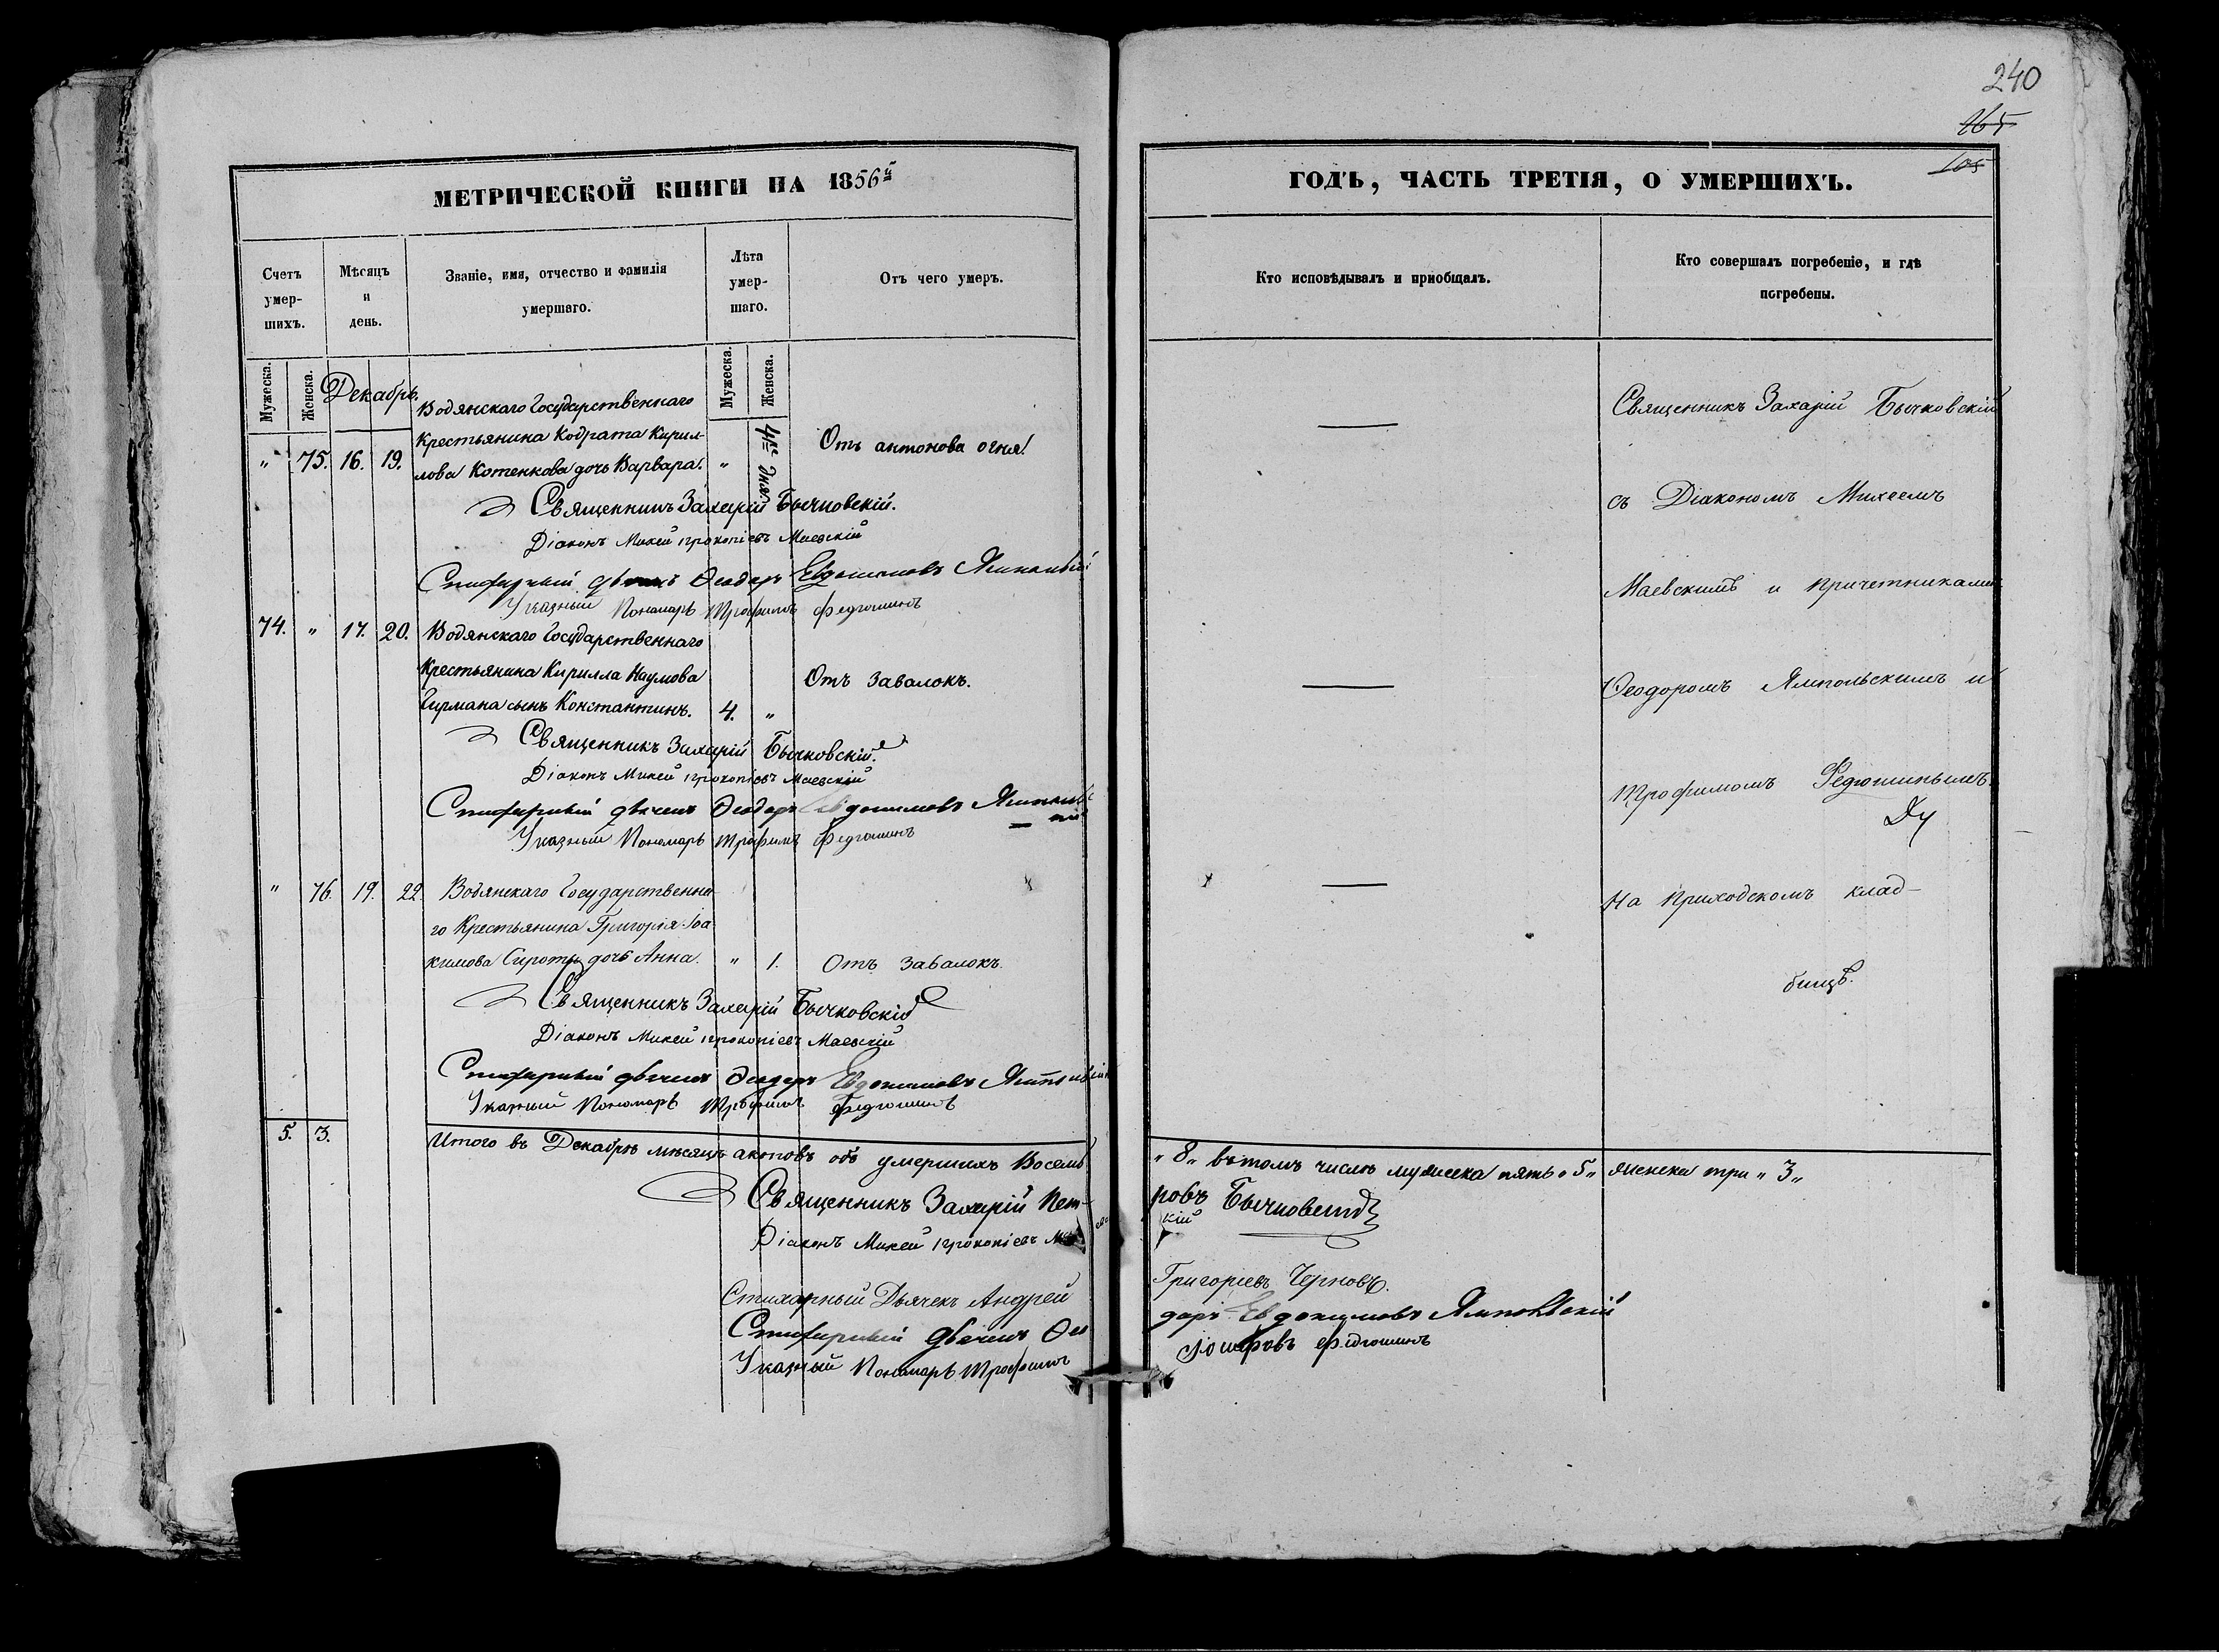 240
165
105
МЕТРИЧЕСКОЙ КНИГИ НА 1856й
Счетъ умер-шихъ.
Мѣсяцъ и день.
Званіе, имя, отчество и фамилія умершаго.
Лѣта умер-шаго.
Отъ чего умеръ.
Мужеска. Женска. Мужеска. Женска.
Декабрь.
Водянскаго Государственнаго
Крестьянина Кодрата Кирил-
" 75. 16. 19. лова Котенкова дочь Варвара. " 4хъ дня. Отъ антонова огня.
Священникъ Захарій Бычковскій.
Діаконъ Михей Прокопіевъ Маевскій
Стихарный дьячекъ Ѳеодоръ Евдокимовъ Ямпольскій
Указный Пономарь Трофимъ Федюшинъ
74. " 17. 20. Водянскаго Государственнаго
Крестьянина Кирилла Наумова Отъ завалокъ.
Гирмана сынъ Константинъ. 4. "
Священникъ Захарій Бычковскій.
Діаконъ Михей Прокопіевъ Маевскій
Стихарный дьячекъ Ѳеодоръ Евдокимовъ Ямполь-
Указный Пономарь Трофимъ Федюшинъ
" 76. 19. 22. Водянскаго Государственна-
го Крестьянина Григорія Іоа-
кимова Сироты дочь Анна. " 1. Отъ завалокъ.
Священникъ Захарій Бычковскій
Діаконъ Михей Прокопіевъ Маевскій
Стихарный дьячекъ Ѳеодоръ Евдокимовъ Ямпольскій
Указный Пономарь Трофимъ Федюшинъ
5. 3. Итого въ Декабрѣ мѣсяцѣ актовъ объ умершихъ Восемь
Священникъ Захарій Пет-
Діаконъ Михей Прокопіевъ
Стихарный Дьячекъ Андрей
Стихарный дьячекъ Ѳео
Указный Пономарь Трофимъ
ГОДЪ, ЧАСТЬ ТРЕТІЯ, О УМЕРШИХЪ.
Кто исповѣдывалъ и пріобщалъ.
Кто совершалъ погребеніе, и гдѣ погребены.
Священникъ Захарій Бычковскій
съ Діакономъ Михеемъ
Маевскимъ и причетниками
Ѳеодоромъ Ямпольскимъ и
Трофимомъ Федюшинымъ.
На приходскомъ клад-
бищѣ.
"8" въ томъ числѣ мужеска пять "5" женска три "3"
ровъ Бычковскій
кій
Григоріевъ Черновъ.
доръ Евдокимовъ Ямпольскій
Іосифовъ Федюшинъ